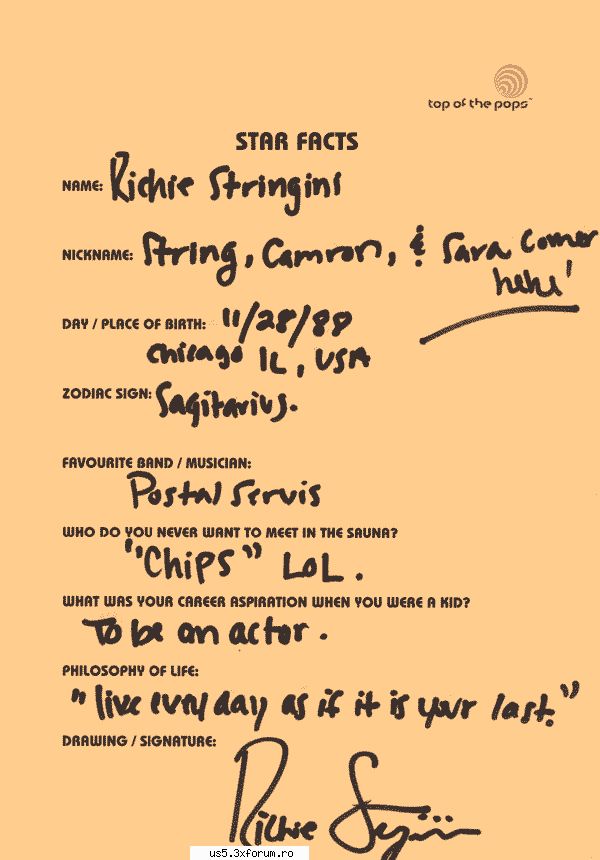 top of the pops™
STAR FACTS
NAME: Richie Stringini
NICKNAME: String, Camron, & Sara Comer
hehe!
DAY / PLACE OF BIRTH: 11/28/88
Chicago IL, USA
ZODIAC SIGN: Sagitarius.
FAVOURITE BAND / MUSICIAN:
Postal Servis
WHO DO YOU NEVER WANT TO MEET IN THE SAUNA?
"Chips" LOL.
WHAT WAS YOUR CAREER ASPIRATION WHEN YOU WERE A KID?
To be an actor.
PHILOSOPHY OF LIFE:
"live every day as if it is your last."
DRAWING / SIGNATURE:
Richie
us5.3xforum.ro